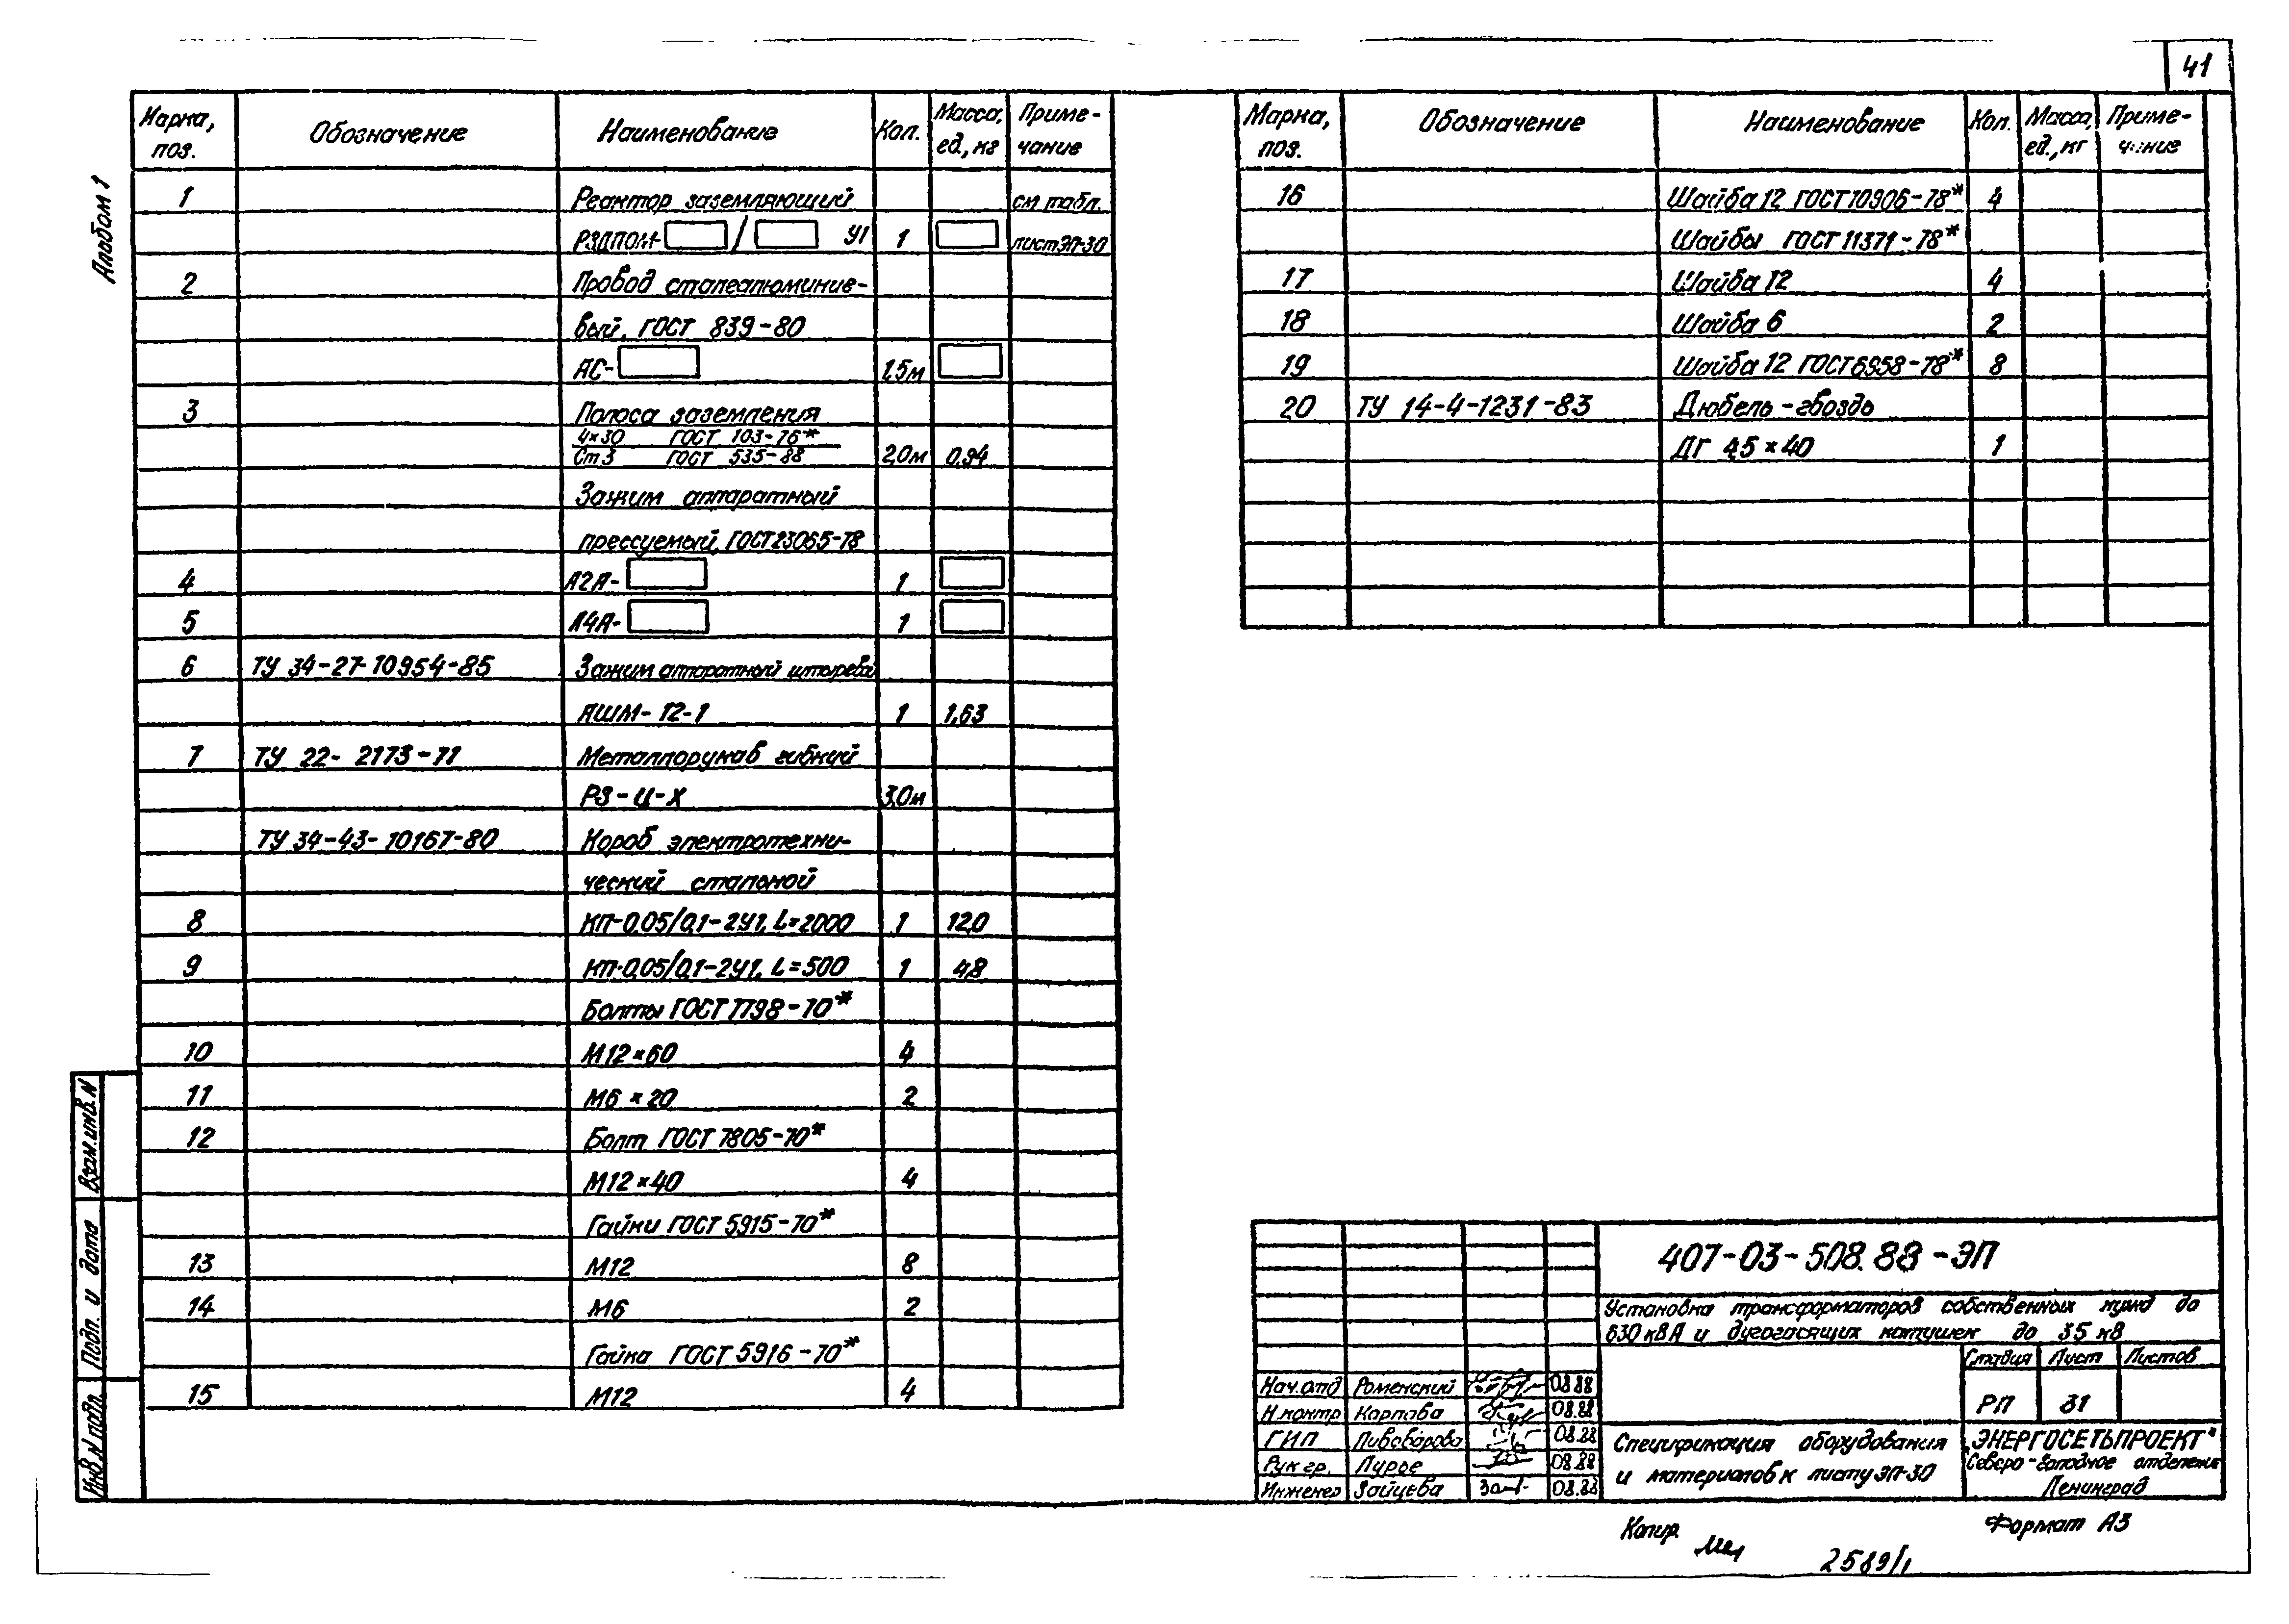 41
Альбом 1
Марка, поз. Обозначение Наименование Кол. Масса, ед., кг Приме-чание
1 Реактор заземляющий см табл.
РЗДПОМ- / У1 1 лист ЭП-30
2 Провод сталеалюминие-
вый, ГОСТ 839-80
АС- 1,5м
3 Полоса заземления
4×30 ГОСТ 103-76*
Ст3 ГОСТ 535-88 2,0м 0,94
Зажим аппаратный
прессуемый, ГОСТ 23065-78
4 А2А- 1
5 А4А- 1
6 ТУ 34-27-10954-85 Зажим аппаратный штырева
АШМ-12-1 1 1,63
7 ТУ 22-2173-71 Металлорукав гибкий
РЗ-Ц-Х 3,0м
ТУ 34-43-10167-80 Короб электротехни-
ческий стальной
8 КП-0,05/0,1-2У1, L=2000 1 12,0
9 КП-0,05/0,1-2У1, L=500 1 4,8
Болты ГОСТ 7798-70*
10 М12×60 4
11 М6×20 2
12 Болт ГОСТ 7805-70*
М12×40 4
Гайки ГОСТ 5915-70*
13 М12 8
14 М6 2
Гайка ГОСТ 5916-70*
15 М12 4
Марка, поз. Обозначение Наименование Кол. Масса, ед., кг Приме-чание
16 Шайба 12 ГОСТ 10906-78* 4
Шайбы ГОСТ 11371-78*
17 Шайба 12 4
18 Шайба 6 2
19 Шайба 12 ГОСТ 6958-78* 8
20 ТУ 14-4-1231-83 Дюбель-гвоздь
ДГ 4,5×40 1
Взам. инв. N
Подп. и дата
Инв. N подл.
407-03-508.88-ЭП
Установка трансформаторов собственных нужд до
630 кВА и дугогасящих катушек до 35 кВ
Стадия Лист Листов
РП 31
Нач. отд Роменский 08.88
Н. контр Карпова 08.88
ГИП Пивоварова 08.88
Рук гр. Лурье 08.88
Инженер Зайцева 08.88
Спецификация оборудования
и материалов к листу ЭП-30
"ЭНЕРГОСЕТЬПРОЕКТ"
Северо-Западное отделение
Ленинград
Копир
Формат А3
2589/1